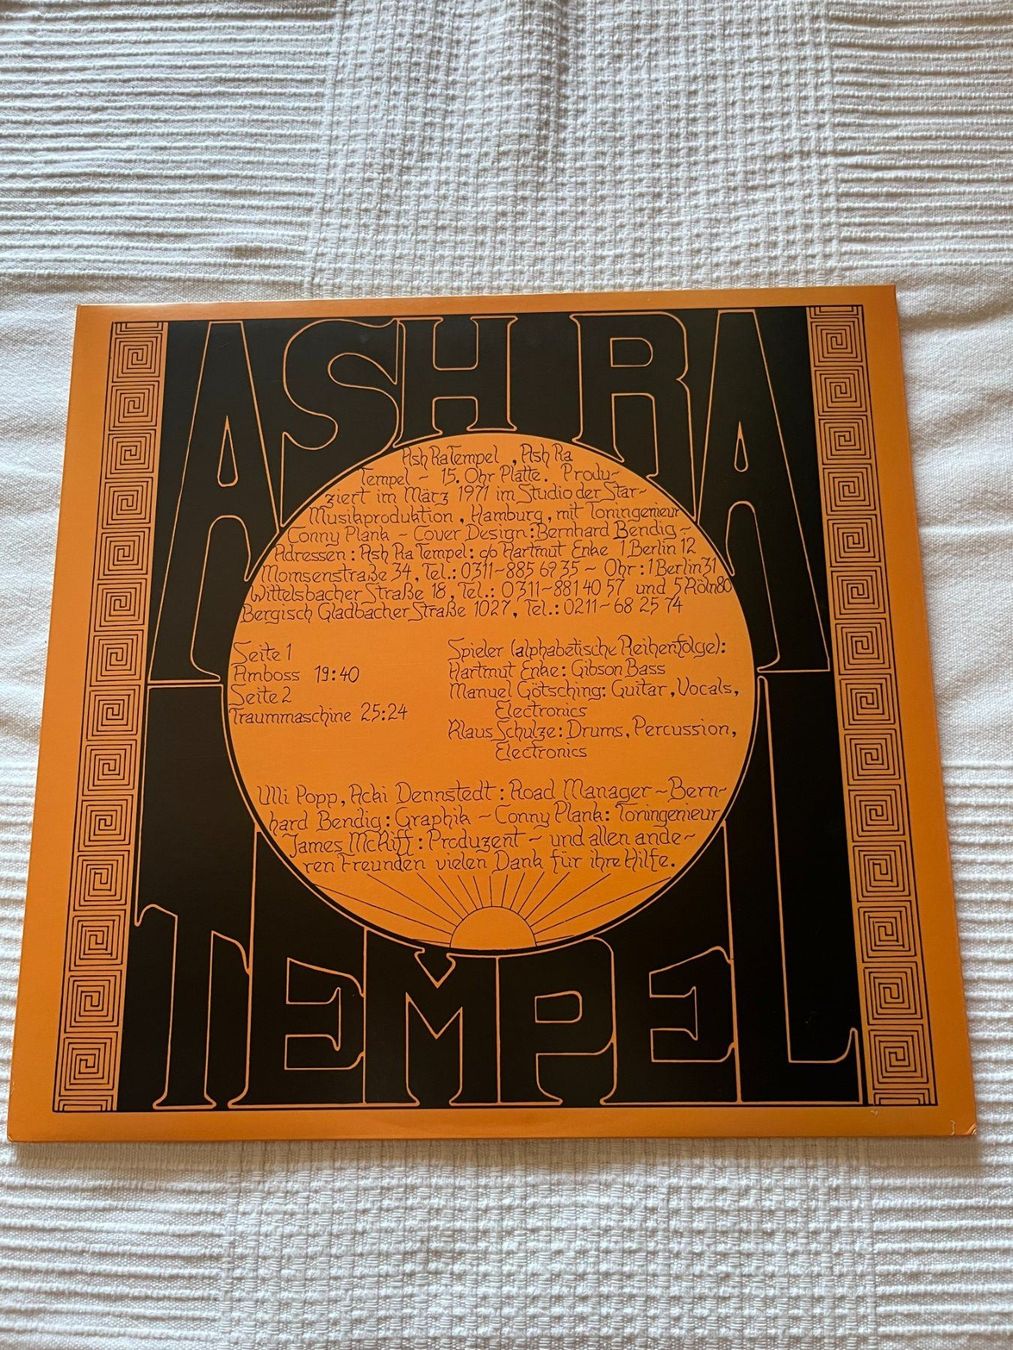 ASH RA
Ash Ra Tempel, Ash Ra
Tempel ~ 15. Ohr Platte. Produ-
ziert im März 1971 im Studio der Star-
Musikproduktion, Hamburg, mit Toningenieur
Conny Plank ~ Cover Design: Bernhard Bendig ~
Adressen: Ash Ra Tempel: c/o Hartmut Enke 1 Berlin 12
Momsenstraße 34, Tel.: 0311-885 69 35 ~ Ohr: 1 Berlin 31
Wittelsbacher Straße 18, Tel.: 0311-881 40 57 und 5 Köln 80
Bergisch Gladbacher Straße 1027, Tel.: 0211-68 25 74
Seite 1
Amboss 19:40
Seite 2
Traummaschine 25:24
Spieler (alphabetische Reihenfolge):
Hartmut Enke: Gibson Bass
Manuel Götsching: Guitar, Vocals,
Electronics
Klaus Schulze: Drums, Percussion,
Electronics
Ulli Popp, Acki Dennstedt: Road Manager ~ Bern-
hard Bendig: Graphik ~ Conny Plank: Toningenieur
James McKiff: Produzent ~ und allen ande-
ren Freunden vielen Dank für ihre Hilfe.
TEMPEL